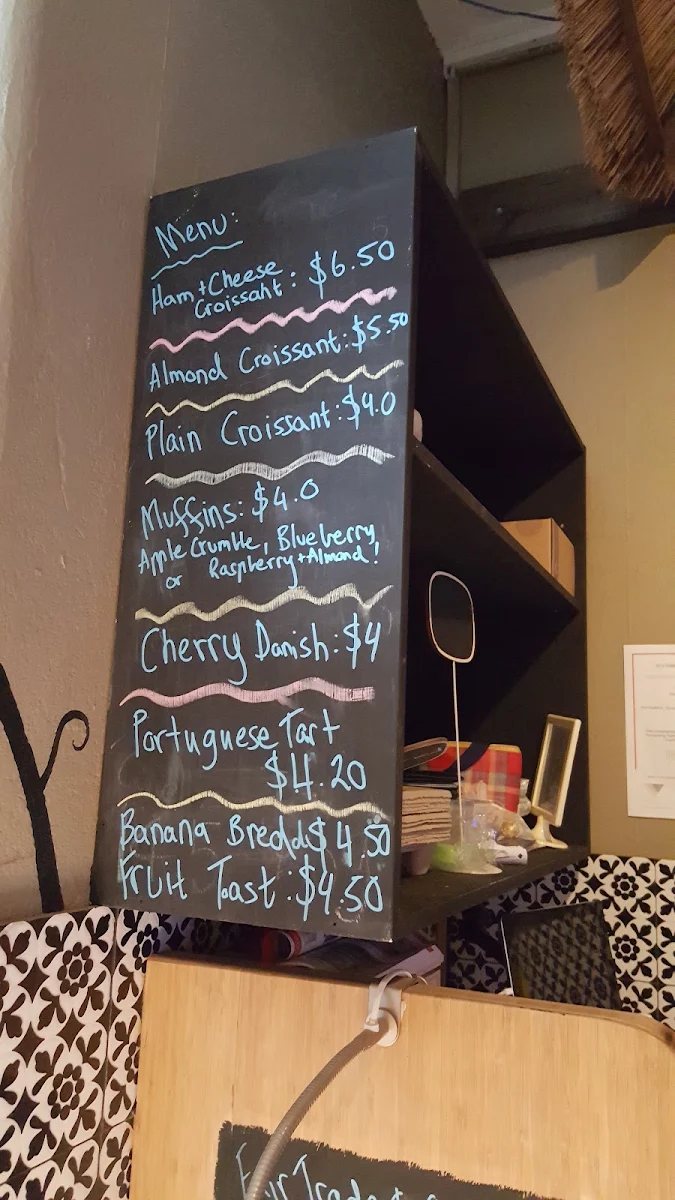 Menu:
Ham+Cheese
Croissant: $6.50
Almond Croissant: $5.50
Plain Croissant: $4.0
Muffins: $4.0
Apple Crumble, Blueberry,
or Raspberry+Almond!
Cherry Danish: $4
Portuguese Tart
$4.20
Banana Bredd $4.50
Fruit Toast: $4.50
Fair Trade